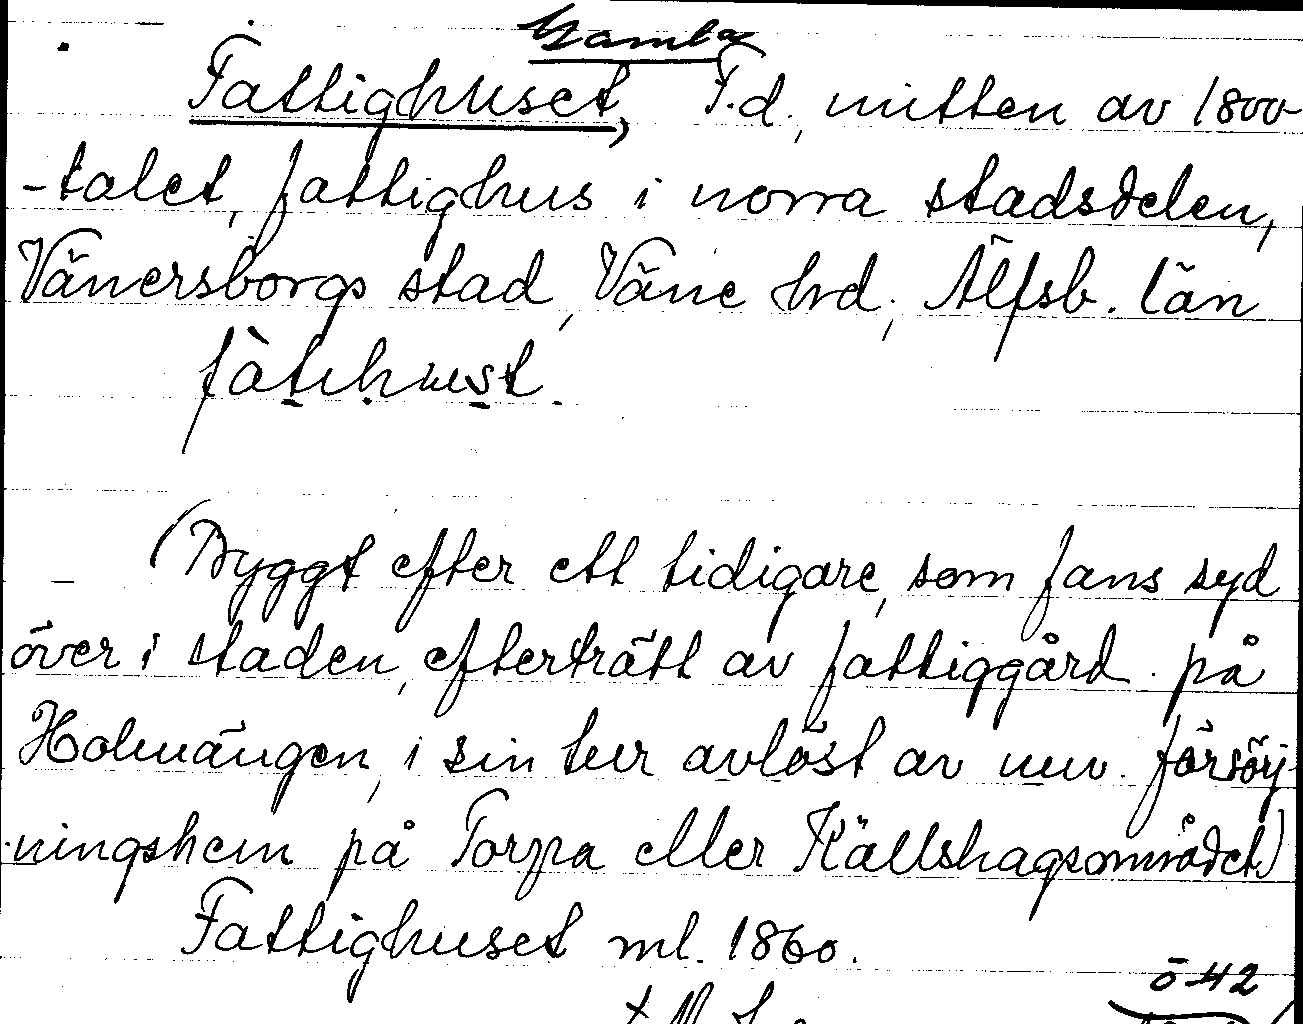 Gamla
Fattighuset, F.d., mitten av 1800-
-talet, fattighus i norra stadsdelen,
Vänersborgs stad, Väne hrd, Älfsb. län
fàtihust.
(Byggt efter ett tidigare, som fans syd
över i staden, efterträtt av fattiggård på
Holmängen, i sin tur avlöst av nuv. försörj-
ningshem på Torpa eller Källshagsområdet)
Fattighuset ml. 1860.
ö 42